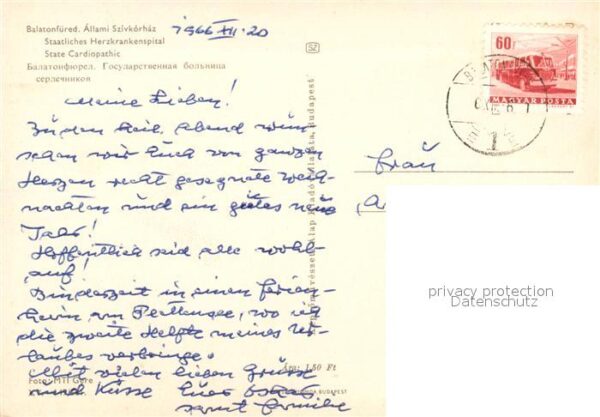 Balatonfüred. Állami Szívkórház
Staatliches Herzkrankenspital
State Cardiopathic
Балатонфюрел. Государственная больница
сердечников
1966 XII. 20
SZ
60f
MAGYAR POSTA
1
Meine Lieben!
Zu den heil. Abend wün
schen wir Euch von ganzen
Herzen recht gesegnete Weih-
nachten und ein gutes neues
Jahr!
Hoffentlich seid alle wohl-
auf!
Bin derzeit in einen Ferien-
heim am Plattensee, wo ich
die zweite Hälfte meines Ur-
laubes verbringe.
Mit vielen lieben Grüsse
und Küsse Euer
samt Familie
Frau
Képzőművészeti Alap Kiadóvállalata, Budapest
Ára: 1,50 Ft
Foto: MTI Gere
BUDAPEST
privacy protection
Datenschutz